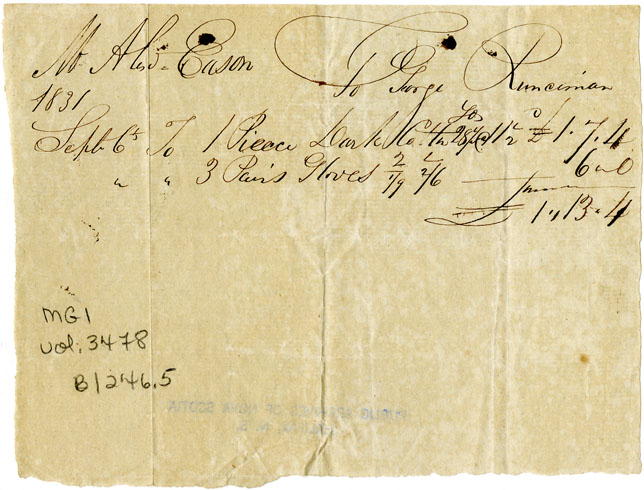 Mr. Alexr. Eason
To George Runciman
1831
Septr 6th To 1 Pieece Dark Co. 28 yds 11½ £ 1. 7. 4
" " 3 Pairs Gloves 2/ 1/9 2/6 6 " 0
£ 1 " 13 " 4
MG1
vol. 3478
B/246.5
PUBLIC ARCHIVES OF NOVA SCOTIA
HALIFAX, N. S.